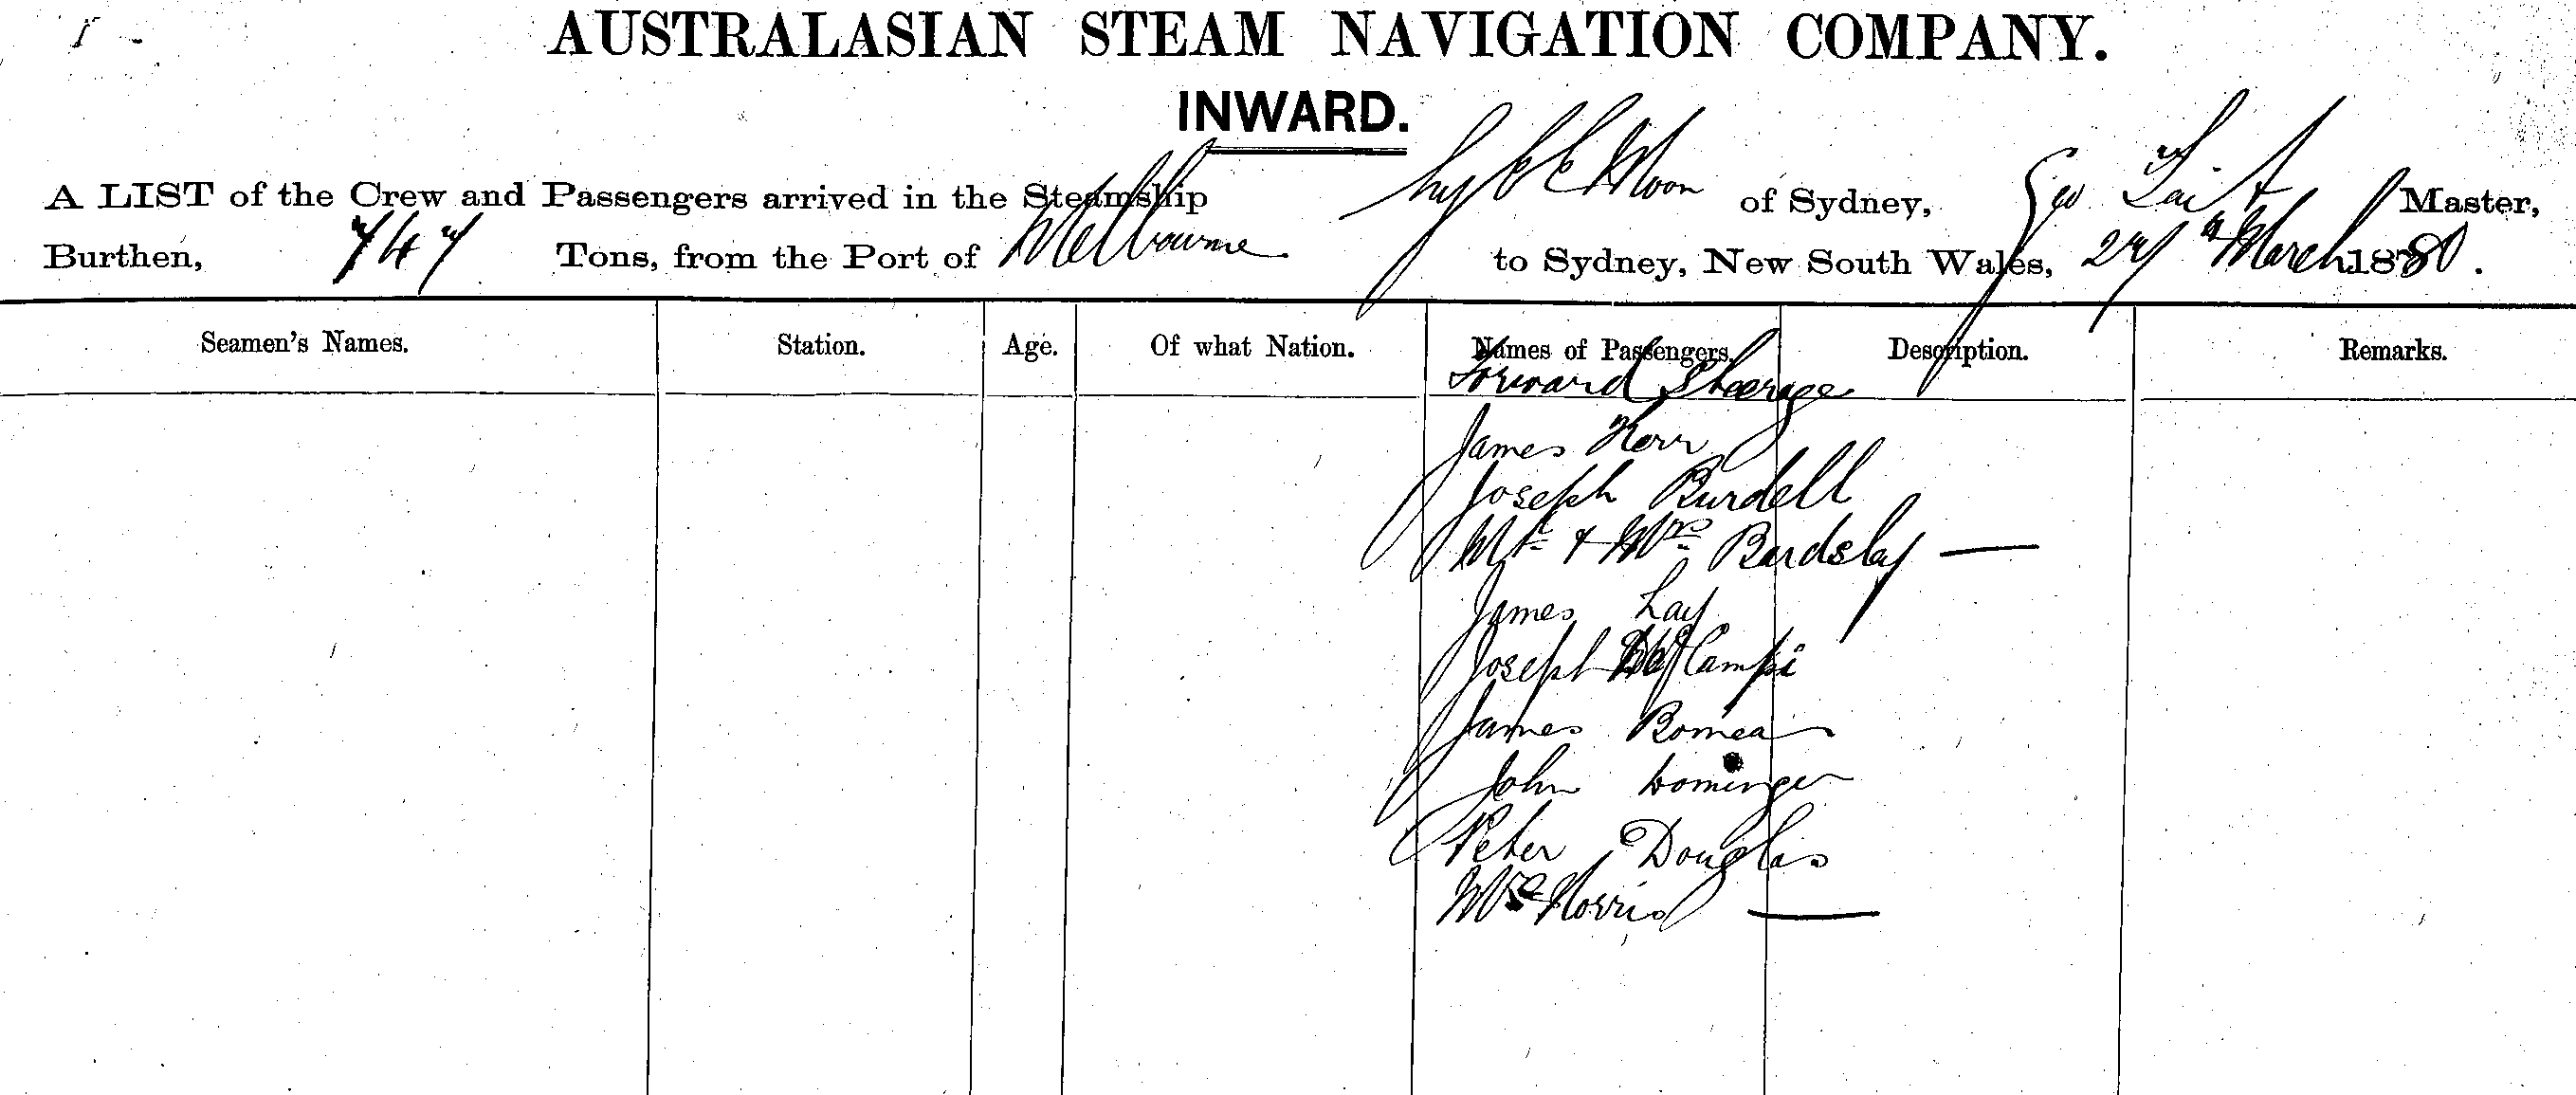 AUSTRALASIAN STEAM NAVIGATION COMPANY.
INWARD.
A LIST of the Crew and Passengers arrived in the Steamship Ly EE Moon of Sydney, Geo Tait Master,
Burthen, 747 Tons, from the Port of Melbourne to Sydney, New South Wales, 27th March 1880.
Seamen's Names. Station. Age. Of what Nation. Names of Passengers. Description. Remarks.
Forward Steerage
James Kerr
Joseph Burdell
Mr & Mrs Bardsley —
James Lay
Joseph Campi
James Bomea
John
Peter Douglas
Mrs Norris —